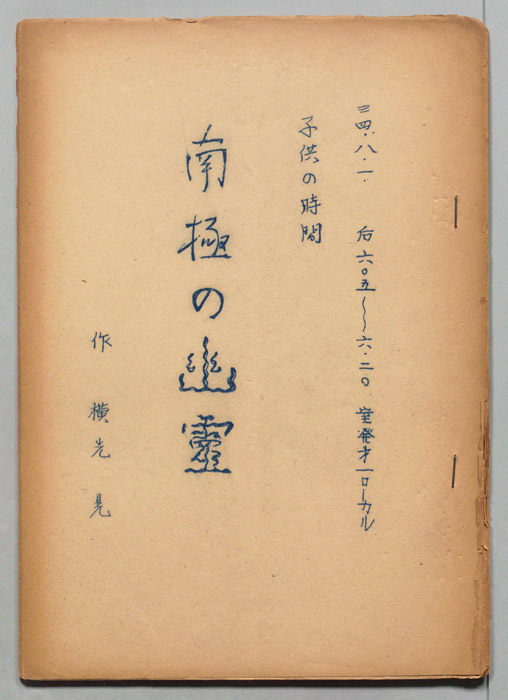 三四・八・一 后六・〇五〜六・二〇 室発才一ローカル
子供の時間
南極の幽靈
作 横光晃